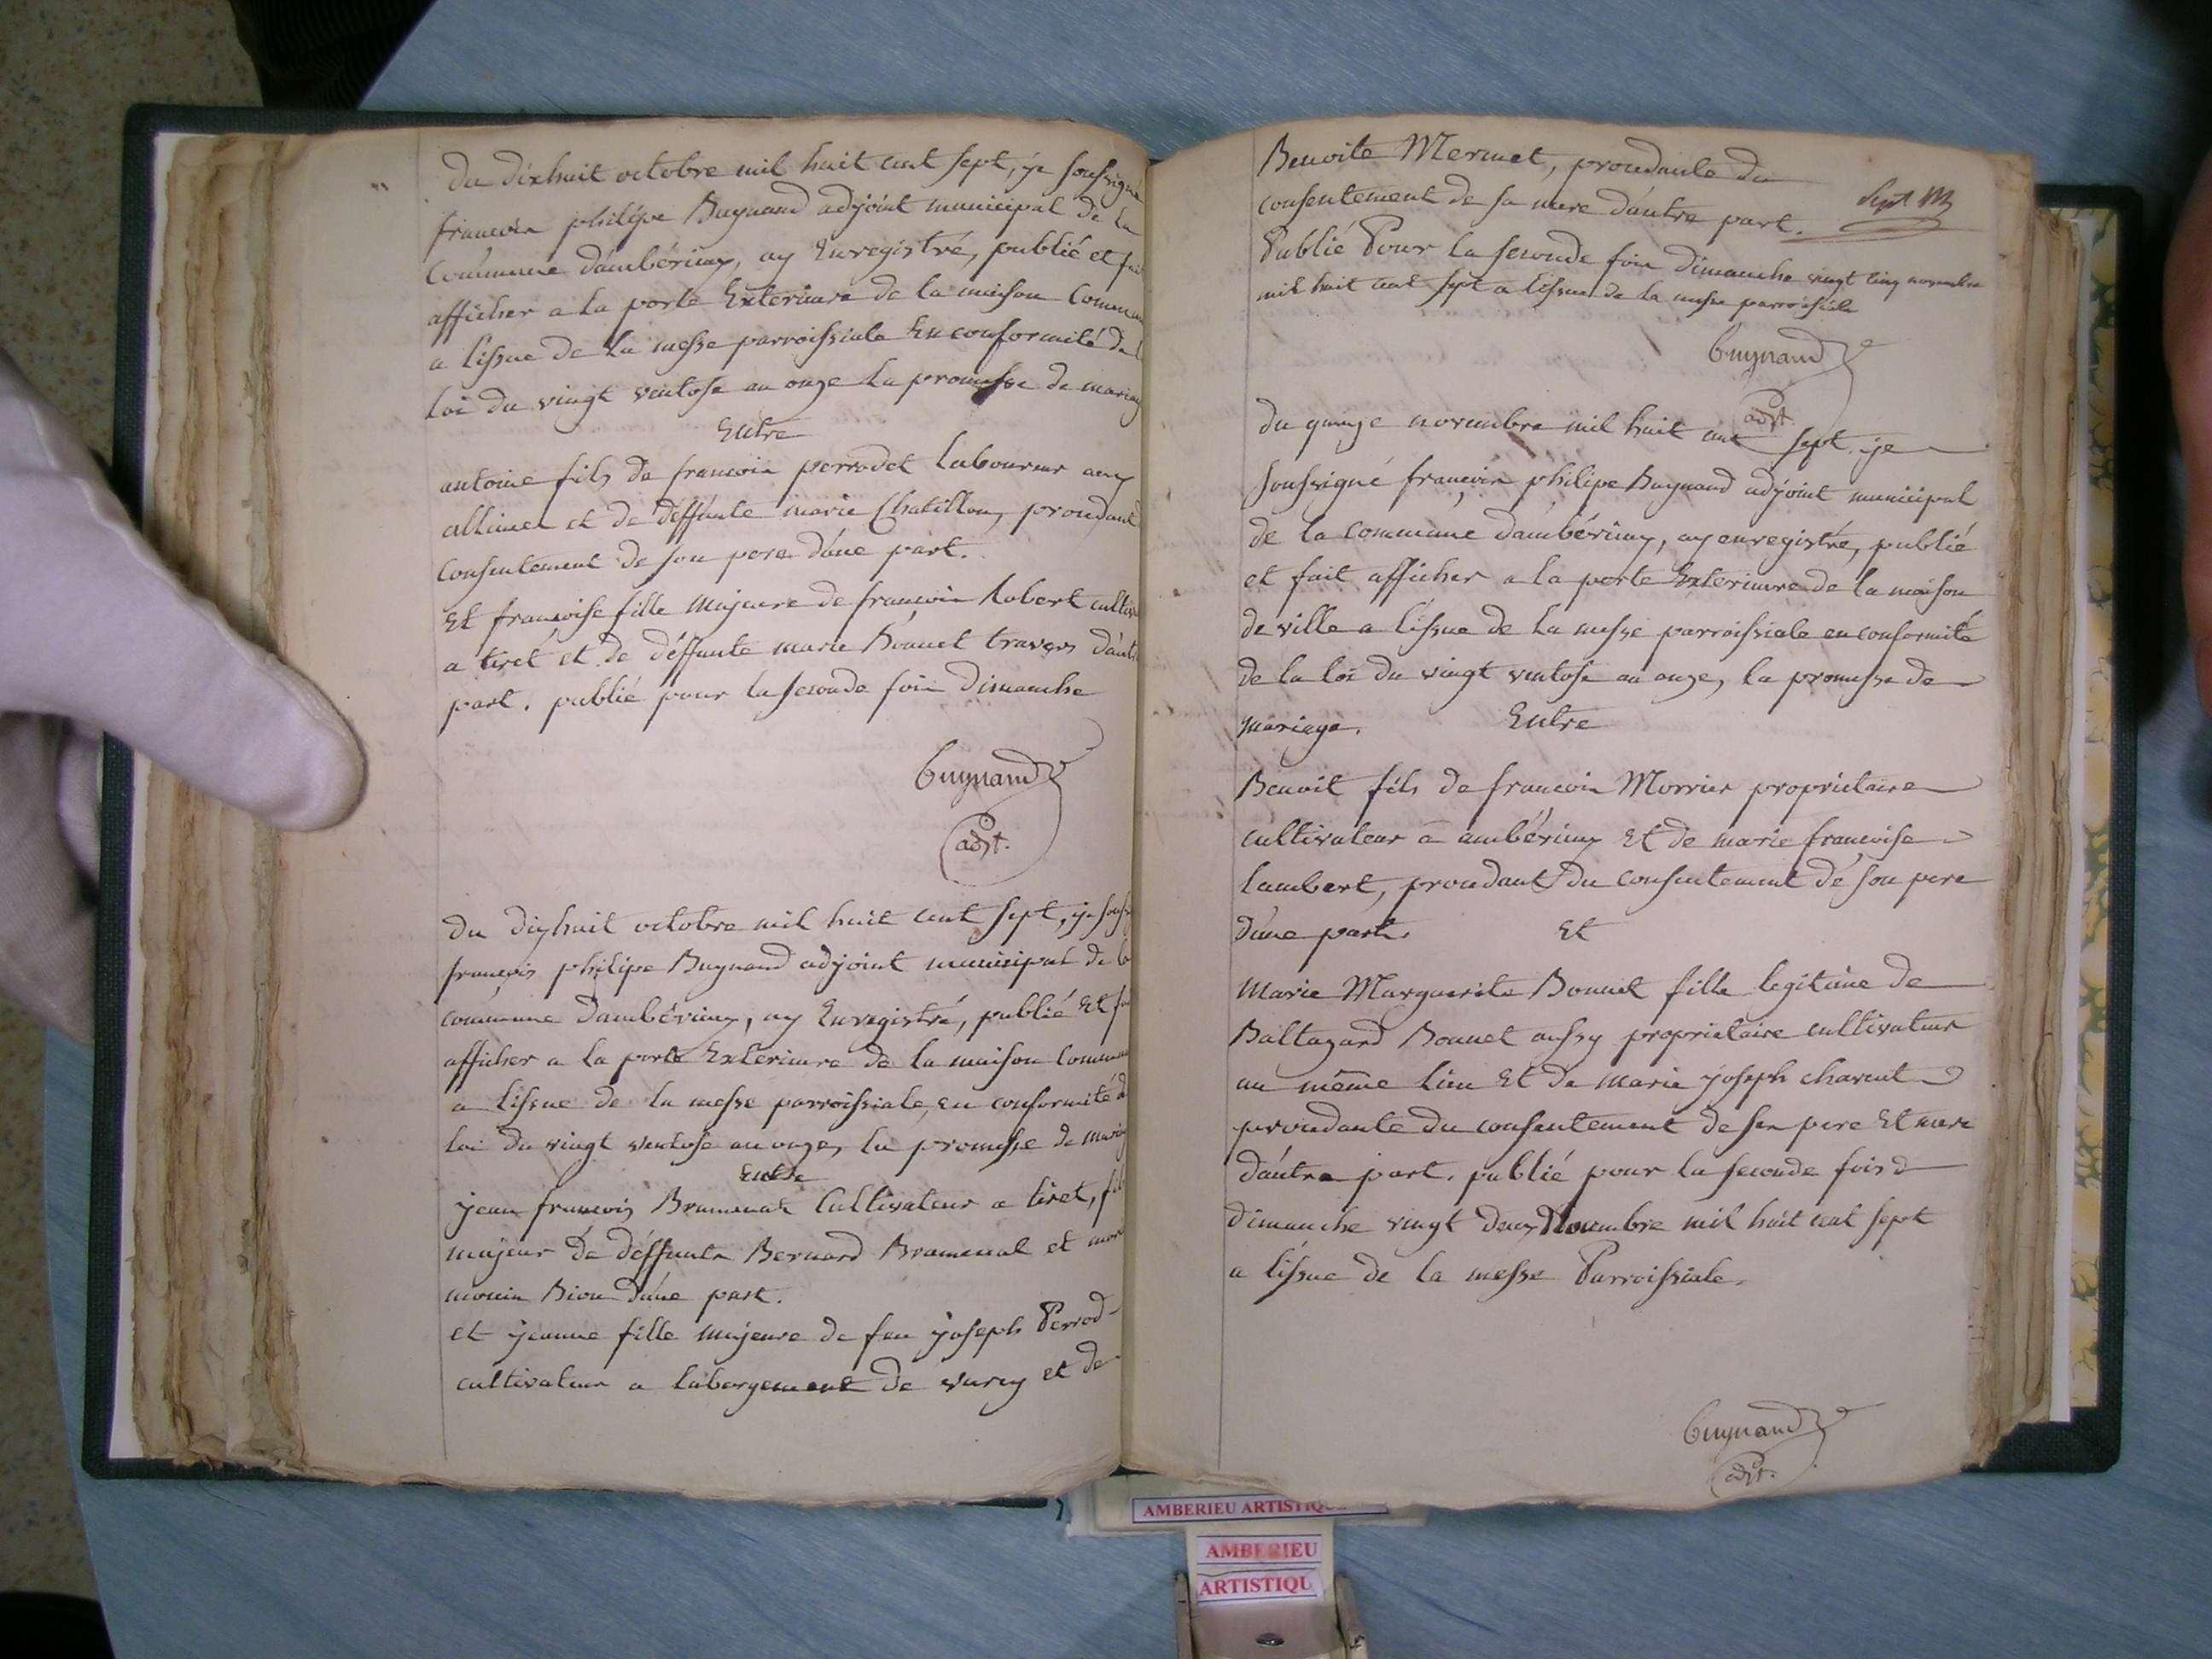 du dixhuit octobre mil huit cent sept, je soussigné
francois philipe Bugnand adjoint municipal de la
Commune d'ambérieux, ay Enregistré, publié et fai
afficher a la porte Exterieure de la maison Commun
a lissue de la messe parroissiale En conformité de l
loi du vingt ventose an onze la promesse de mariag
Entre
antoine fils de francois perrodet laboureur aux
allimes et de déffunte marie Chatillon, proudant
consentement de son pere d'une part.
Et francoise fille majeure de francois Robert cultiv
a tiret et de déffunte marie Bonnet travers d'autr
part. publié pour la seconde fois Dimanche
Bugnand
adjt.
du dixhuit octobre mil huit cent sept, je souss
francois philipe Bugnand adjoint municipal de la
commune d'ambérieux, ay Enregistré, publié Et fa
afficher a la porte Exterieure de la maison Commun
a lissue de la messe parroissiale, en conformité d
loi du vingt ventose an onze, la promesse de mariag
Entre
jean francois Bramerat Cultivateur a tiret, fil
majeur de déffunts Bernard Brameral et
Biou d'une part.
et jeanne fille majeure de feu joseph Perrod-
cultivateur a labergement de varey et de
Benoite Mermet, proudante du
consentement de sa mere d'autre part.
Sept M
Publié Pour la seconde fois Dimanche vingt cinq novembre
mil huit cent sept a lissue de la messe parroissiale
Bugnand
adjt.
du quinze novembre mil huit cent sept. je
soussigné françois philipe Bugnand adjoint municipal
de la commune d'ambérieux, ay enregistré, publié
et fait afficher a la porte Exterieure de la maison
de ville a l'issue de la messe parroissiale en conformité
de la loi du vingt ventose an onze, la promesse de
mariage. Entre
Benoit fils de francois Morrier propriétaire
cultivateur à ambérieux Et de marie francoise
lambert, proudant du consentement de son pere
d'une part. Et
Marie Marguerite Bonnet fille legitime de
Baltazard Bonnet aussy propriétaire cultivateur
au même lieu Et de Marie joseph charvet
proudante du consentement de ses pere Et mere
d'autre part. publié pour la seconde fois
dimanche vingt deux Novembre mil huit cent sept
a lissue de la messe Parroissiale.
Bugnand
adjt.
AMBERIEU ARTISTIQUE
AMBERIEU
ARTISTIQU